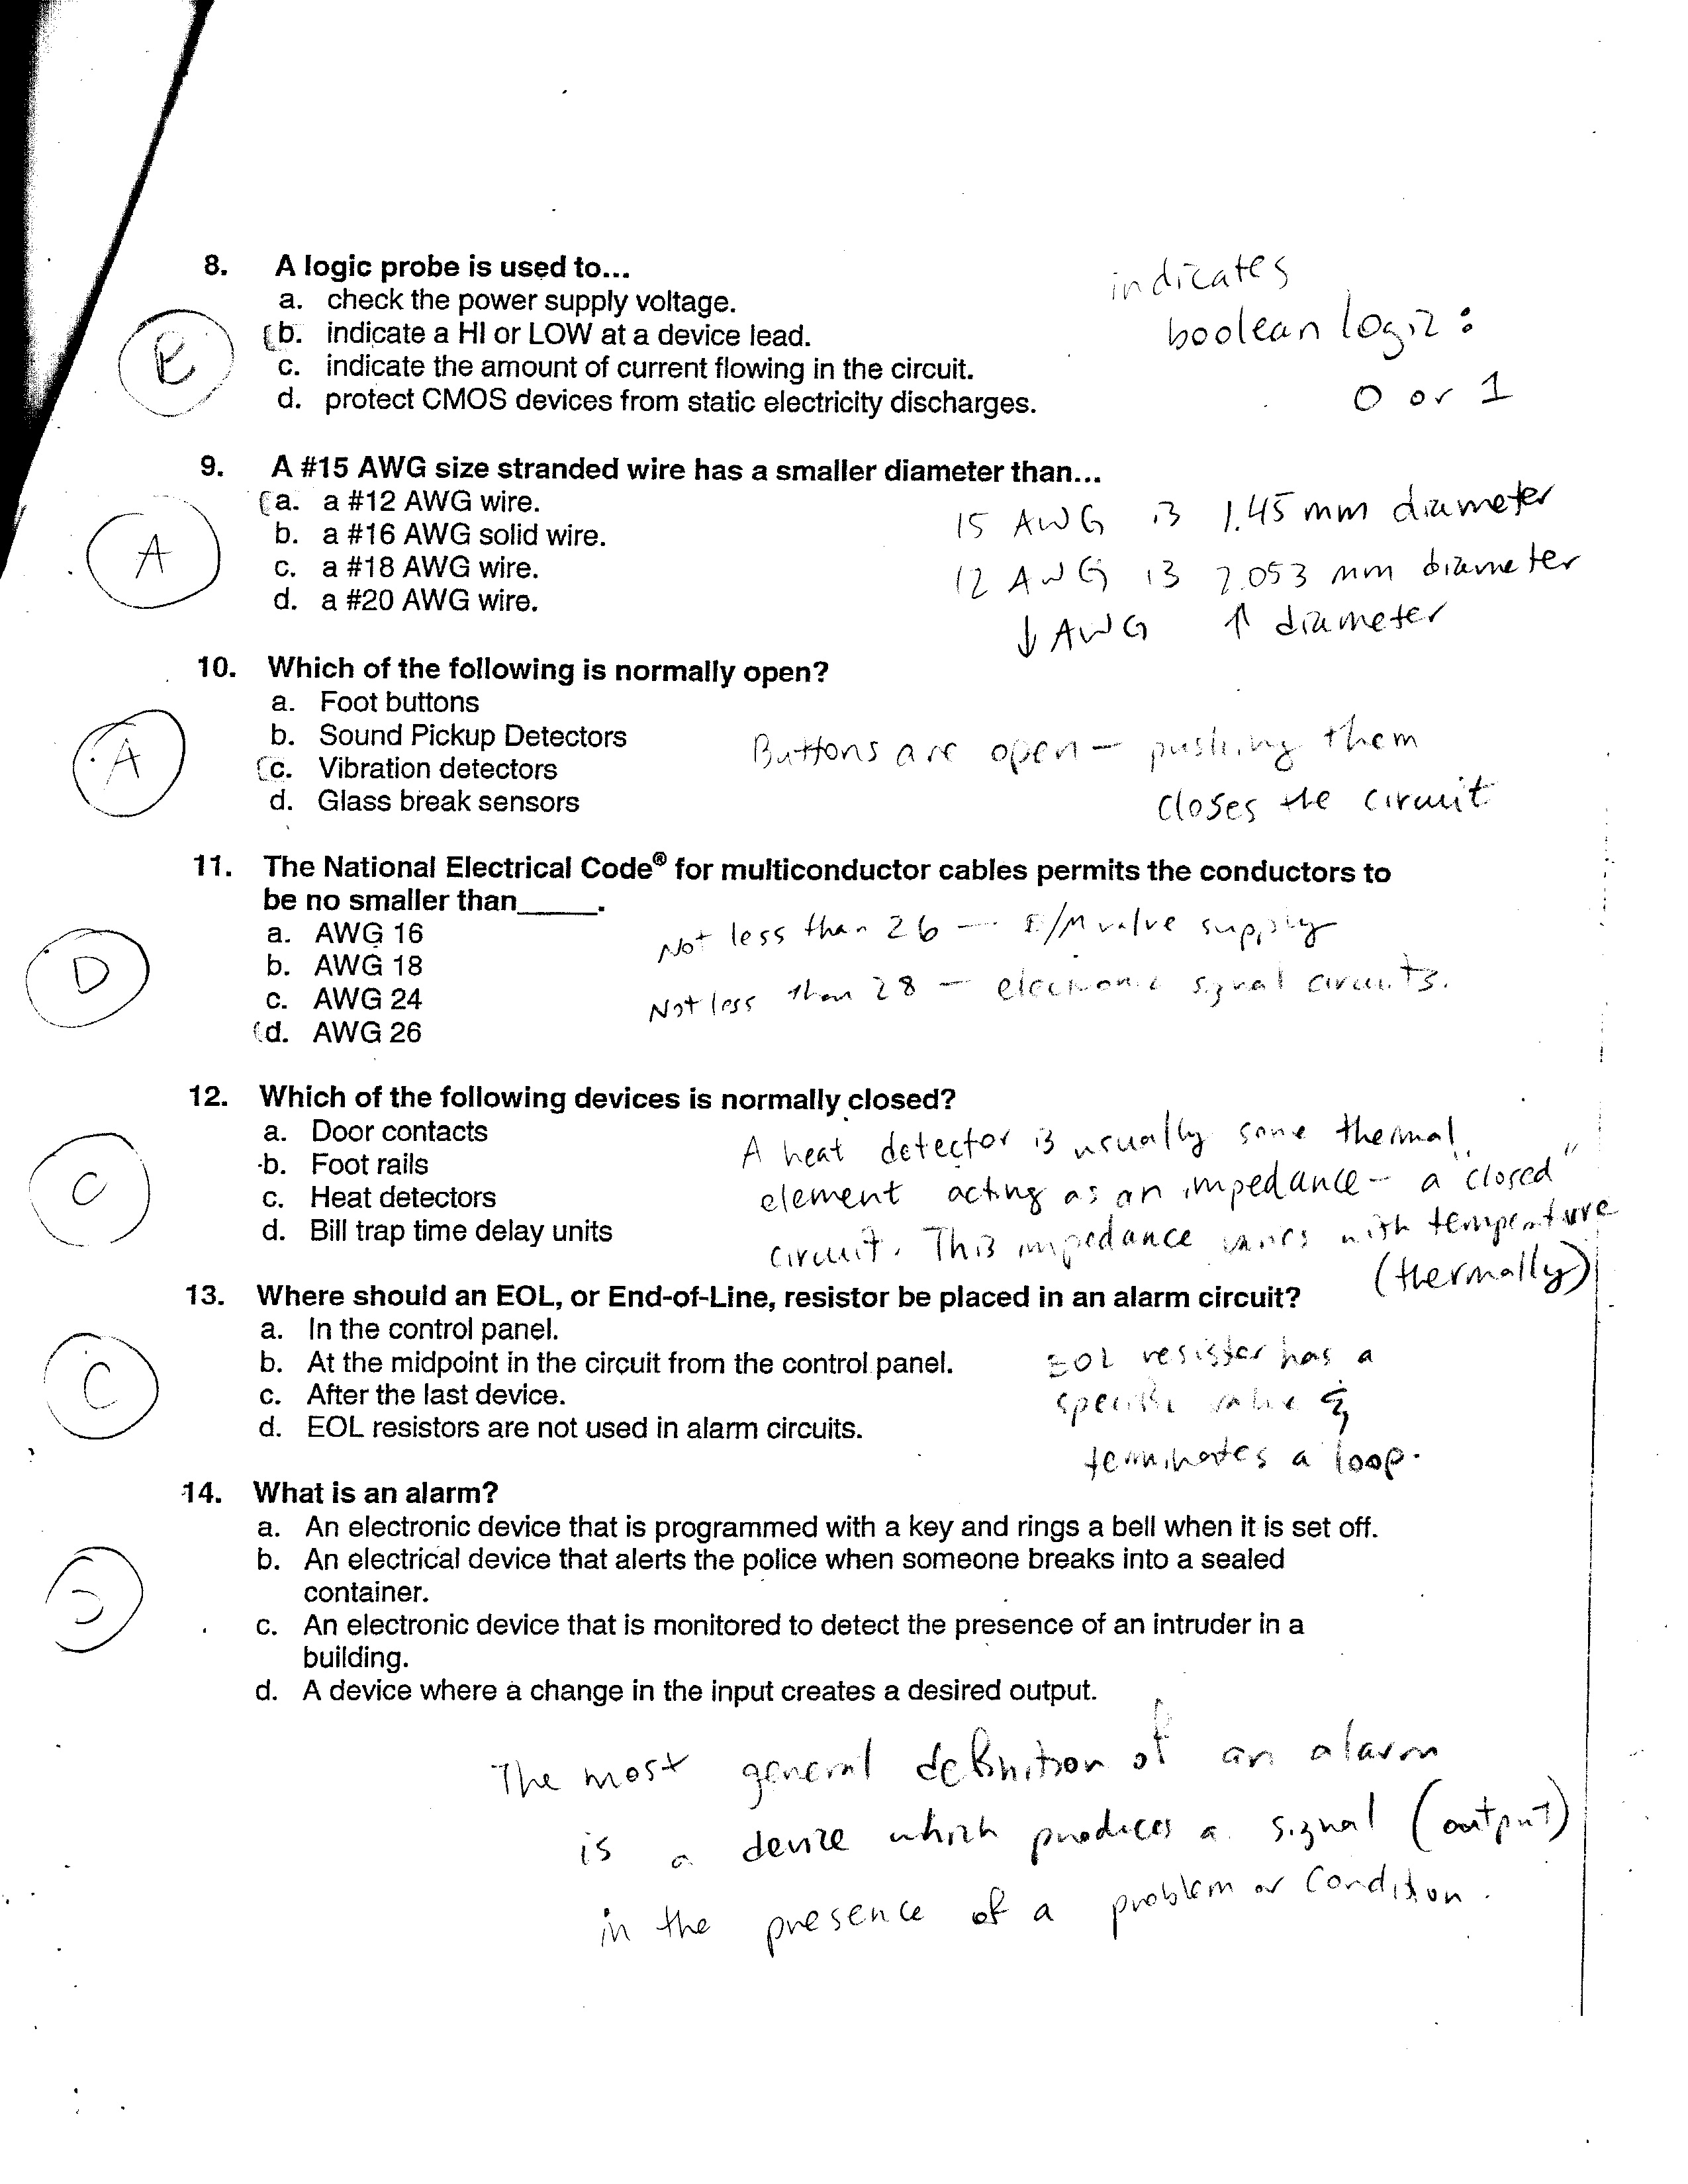 8. A logic probe is used to...
a. check the power supply voltage.
b. indicate a HI or LOW at a device lead.
c. indicate the amount of current flowing in the circuit.
d. protect CMOS devices from static electricity discharges.
indicates
boolean logic:
0 or 1
9. A #15 AWG size stranded wire has a smaller diameter than...
A
a. a #12 AWG wire.
b. a #16 AWG solid wire.
c. a #18 AWG wire.
d. a #20 AWG wire.
15 AWG is 1.45 mm diameter
12 AWG is 2.053 mm diameter
↓ AWG ↑ diameter
10. Which of the following is normally open?
A
a. Foot buttons
b. Sound Pickup Detectors
c. Vibration detectors
d. Glass break sensors
Buttons are open — pushing them
closes the circuit
11. The National Electrical Code® for multiconductor cables permits the conductors to
be no smaller than_____.
D
a. AWG 16
b. AWG 18
c. AWG 24
d. AWG 26
Not less than 26 — E/M valve supply
Not less than 28 — electronic signal circuits.
12. Which of the following devices is normally closed?
C
a. Door contacts
b. Foot rails
c. Heat detectors
d. Bill trap time delay units
A heat detector is usually some thermal
element acting as an impedance — a "closed"
circuit. This impedance varies with temperature
(thermally)
13. Where should an EOL, or End-of-Line, resistor be placed in an alarm circuit?
C
a. In the control panel.
b. At the midpoint in the circuit from the control panel.
c. After the last device.
d. EOL resistors are not used in alarm circuits.
EOL resister has a
specific value &
terminates a loop.
14. What is an alarm?
D
a. An electronic device that is programmed with a key and rings a bell when it is set off.
b. An electrical device that alerts the police when someone breaks into a sealed
container.
c. An electronic device that is monitored to detect the presence of an intruder in a
building.
d. A device where a change in the input creates a desired output.
The most general definition of an alarm
is a device which produces a signal (output)
in the presence of a problem or condition.